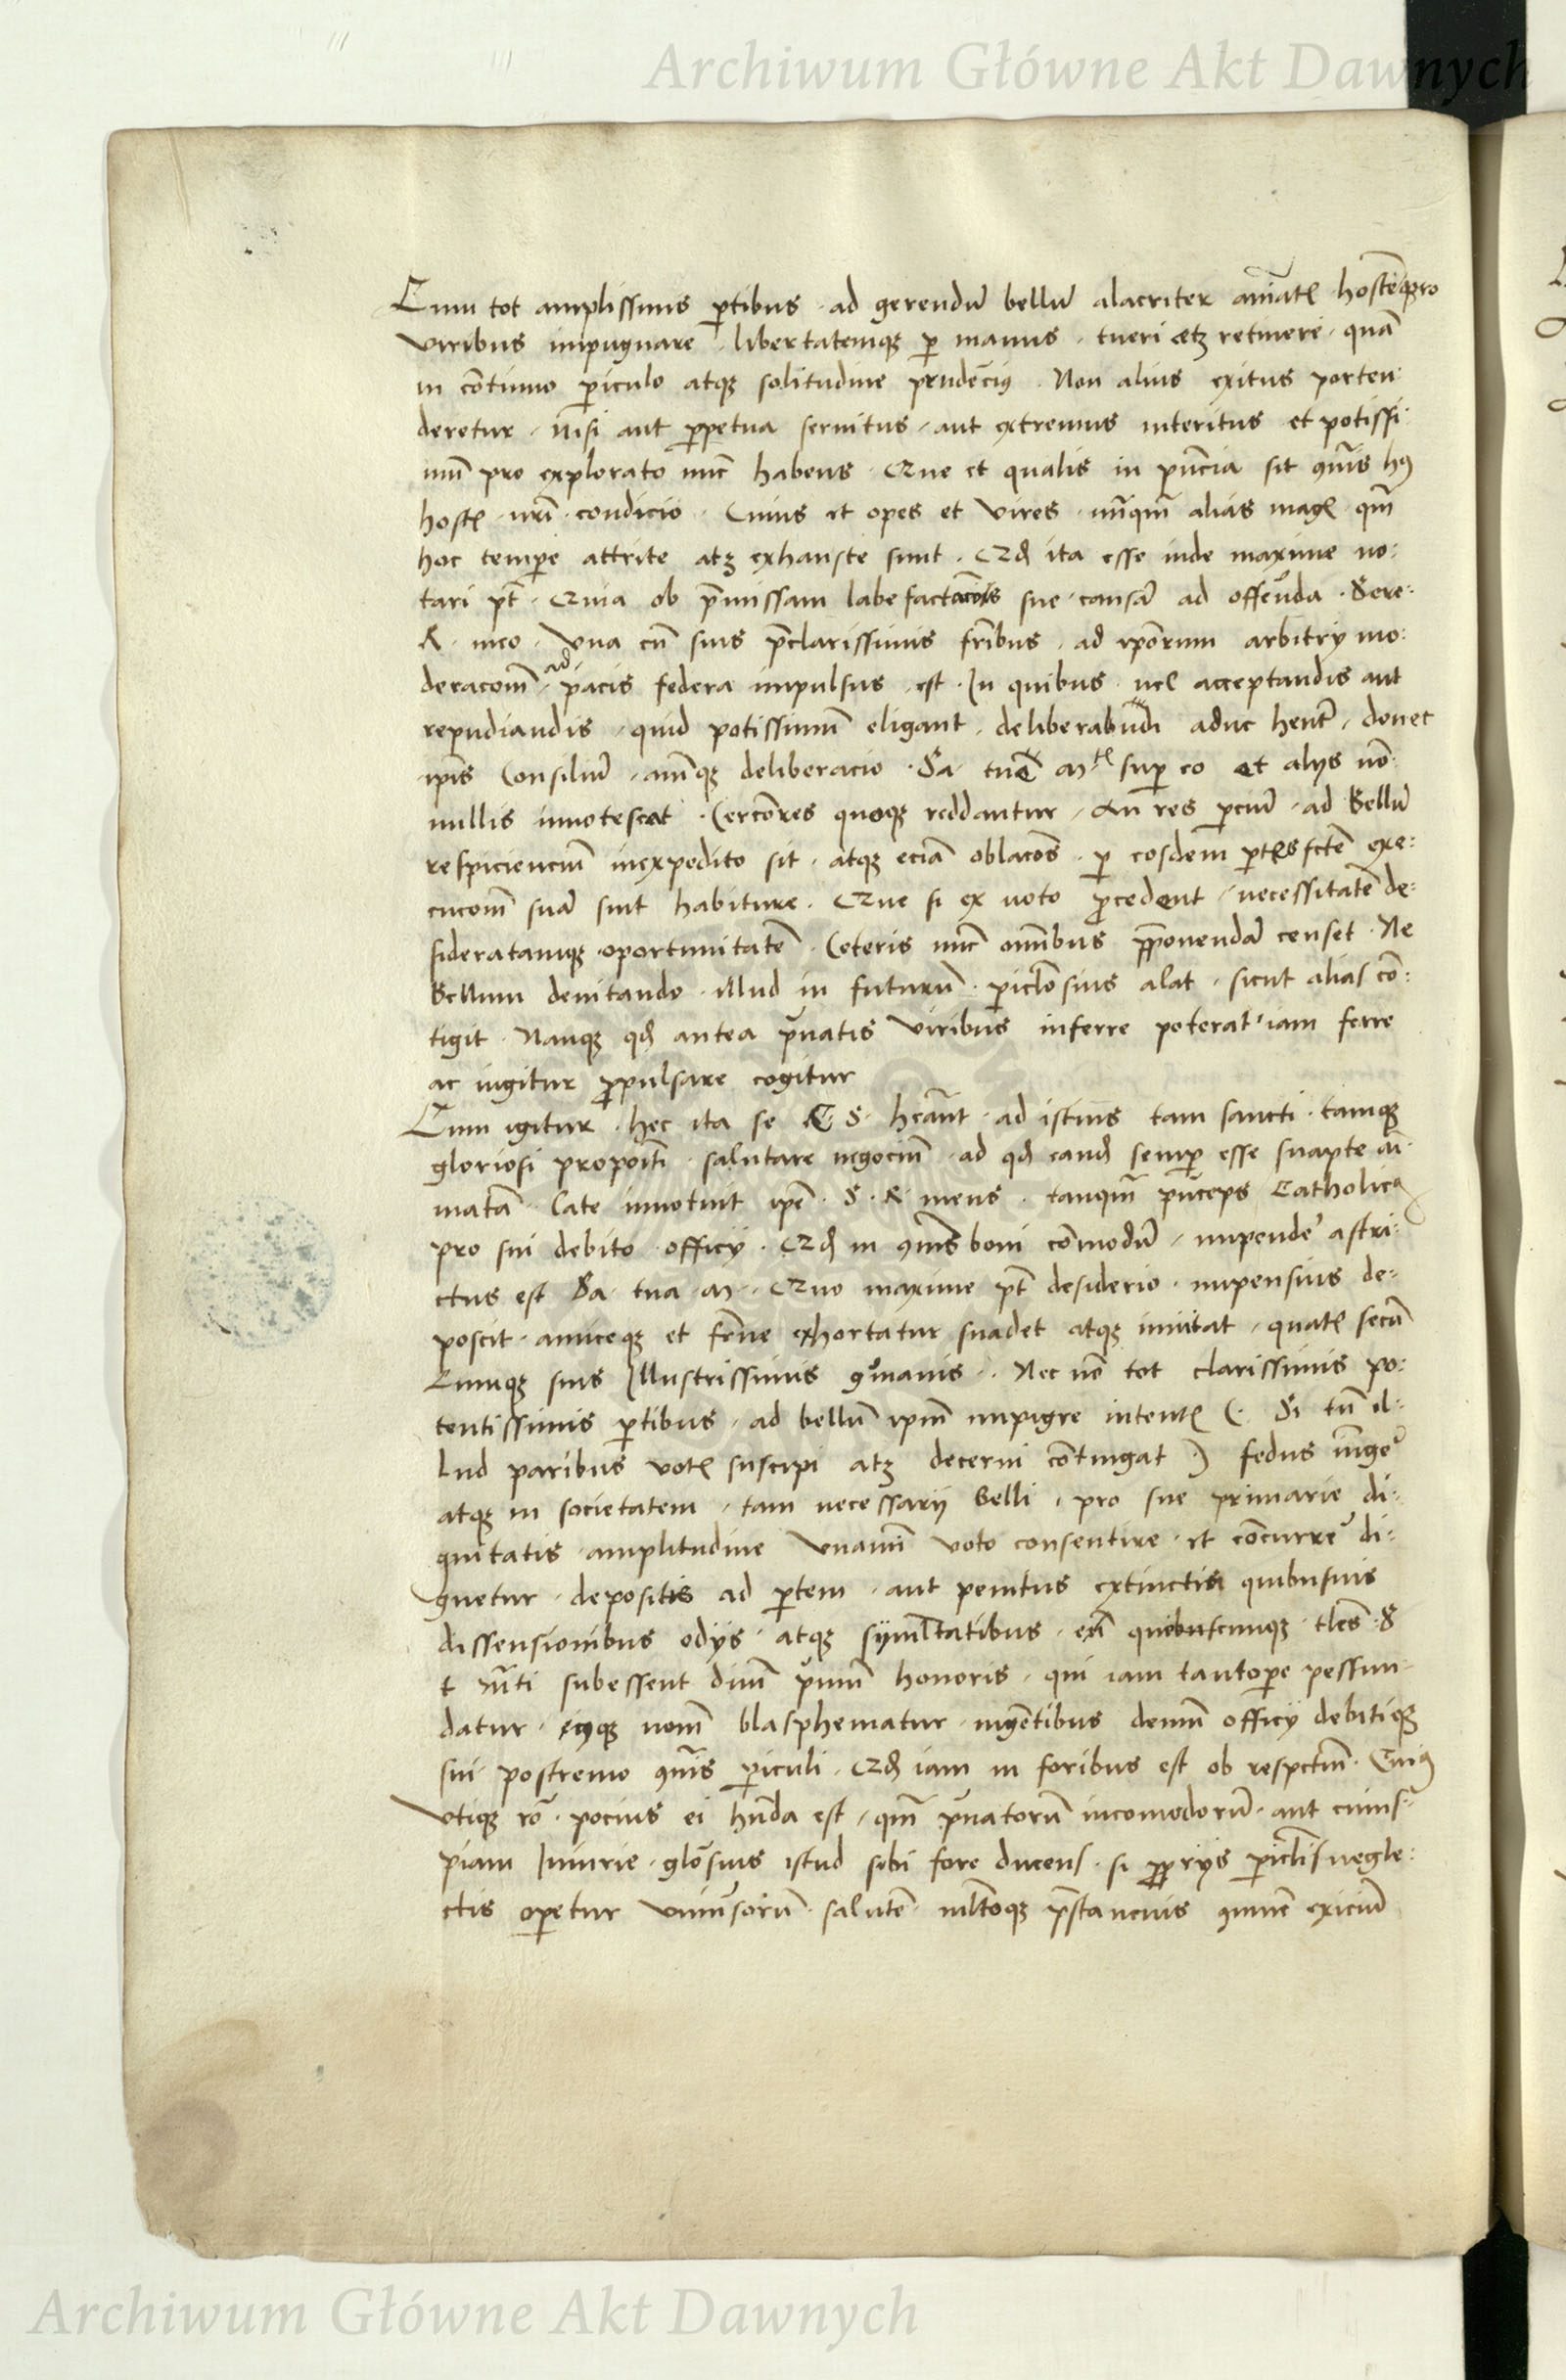 Archiwum Główne Akt Dawnych
Cum tot amplissimis ꝑtibus · ad gerendū bellū alacriter aīatꝭ hostēqꝫ pro
viribus impugnare · libertatemqꝫ ꝑ manus · tueri atqꝫ retinere · quā
in cōtinuo ꝑiculo atqꝫ solitudine prudēcius · Non alius exitus porten·
deretur · nisi aut ꝑpetua seruitus · aut extremus interitus et potissi·
mū pro explorato nūc habens · Que et qualis in pn̄cia sit ꝯmūis hꝰ
hostꝭ · nr̄i · condicio · Cuius et opes et vires · nūqm̄ alias magꝭ qm̄
hoc tempe attrite atqꝫ exhauste sunt · Qd ita esse inde maxime no:
tari pt̄ · Quia ob p̄missam labefactacōis sue · causā ad offenda · Sere·
R · meo · Vna cū suis p̄clarissimis fr̄ibus · ad ipōrum arbitrij mo:
deracōm · ad pacis federa impulsus est · In quibus · vel acceptandis aut
repudiandis · quid potissimū eligant · deliberabūdi aduc hēnt · donec
ip̄is Consiliū · animqꝫ deliberacio · Sa · tue M^tꝭ suꝑ eo et alijs nō·
nullis innotescat · Cerciōres quoqꝫ reddantur · An res ꝑciū · ad bellū
respicienciū inexpedito sit · atqꝫ eciā oblacōs · ꝑ eosdem ꝑtes fctē exe:
cucōm suā sint habiture · Que si ex voto ꝓcedent · necessitatē de:
sideratamqꝫ oportunitatē · Ceteris nūc om̄ibus p̄ponendā censet · Ne
bellum deuitando · illud in futurū · ꝑiclōsius alat · sicut alias cō:
tigit · Nanqꝫ qd antea pͥuatis viribus inferre poterat iam ferre
ac iugitur ꝓpulsare cogitur
Cum igitur · hec ita se E S · hēant · ad istius tam sancti · tamqꝫ
gloriosi propōiti · salutare negociū · ad qd eand semꝑ esse suapte ai·
matā · Late innotuit ip̄e · S · R · meus · tanqm̄ pn̄ceps Catholicꝰ
pro sui debito · officij · Qd in ꝯmūis boni cōmodū · impendē astri·
ctus est Sa · tua · M · Quo maxime pt̄ desiderio · impensius de·
poscit · amiceqꝫ et fr̄ne exhortatur suadet atqꝫ inuitat · quatꝭ secū
Cumqꝫ suis Illustrissimis gͬmanis · Nec nō tot clarissimis po:
tentissimis ꝑtibus · ad bellū ipm̄ impigre intentꝭ (· Si tn̄ il·
lud paribus votꝭ suscipi atqꝫ decerni cōtingat ·) fedus iūge
atqꝫ in societatem · tam necessarij belli · pro sue primarie di·
gnitatis · amplitudine vnaīni voto consentire · et cōcurre di·
gnetur · depositis ad ꝑtem · aut penitus extinctis quibusuis
dissensionibus odijs · atqꝫ symltatibus · cū quibuscumqꝫ · tles · S
t M̄ti subessent diuī pͥmū honoris · qui iam tantoꝑe pessun·
datur · eiꝰqꝫ nomē blasphematur · ingētibus demū officij debitiqꝫ
sui · postremo ꝯmūis ꝑiculi · Qd iam in foribus est ob respctum · Cuiꝰ
vtiqꝫ rō · pocius ei hn̄da est · qm̄ pͥuatorū incomodorū · aut cuius·
piam Iniurie · gloͦsius istud sibi fore ducens · si ꝓprijs ꝑiclis negle·
ctis oꝑetur vniūsorū · salutē · multoqꝫ p̄stancius ꝯmunē exiciū
Archiwum Główne Akt Dawnych